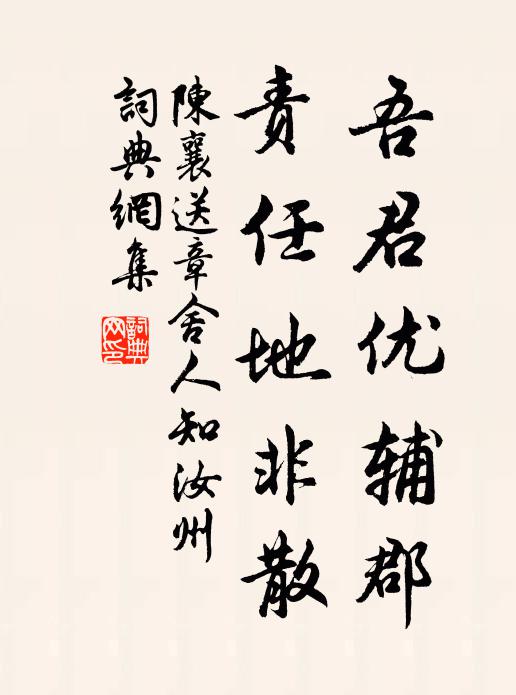 吾君优辅郡
责任地非散
陳襄送章舍人知汝州
詞典網集
詞典网印